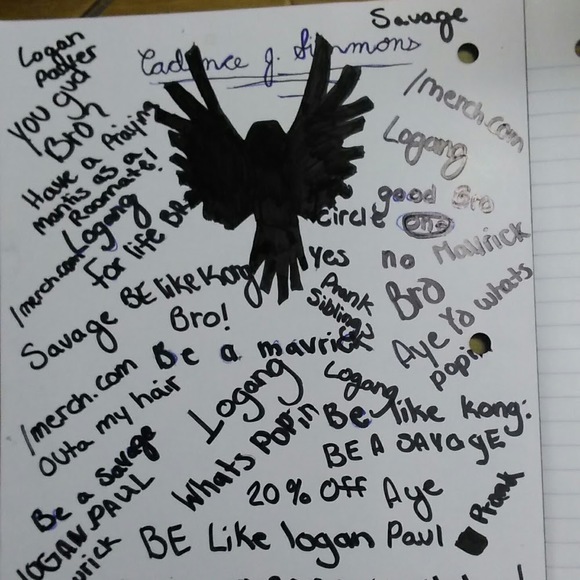 Savage
Cadence J. Simmons
Logan
pauler
You gud
Broh
Have a Praying
mantis as a
Roomate!
Logang
for life BRO
/merch.com
/merch.com
Logang
good Bro
circle one
Yes
no
Mavrick
Prank
Siblings
Bro
Aye Yo whats
popin
Savage BE like Kong
Bro!
Be a mavrick
/merch.com
outa my hair
Logang
Logang
Be like Kong:
BE A SAVAGE
Whats Popin
Be a Savage
LOGAN PAUL
20% Off Aye
Prank
BE Like logan Paul